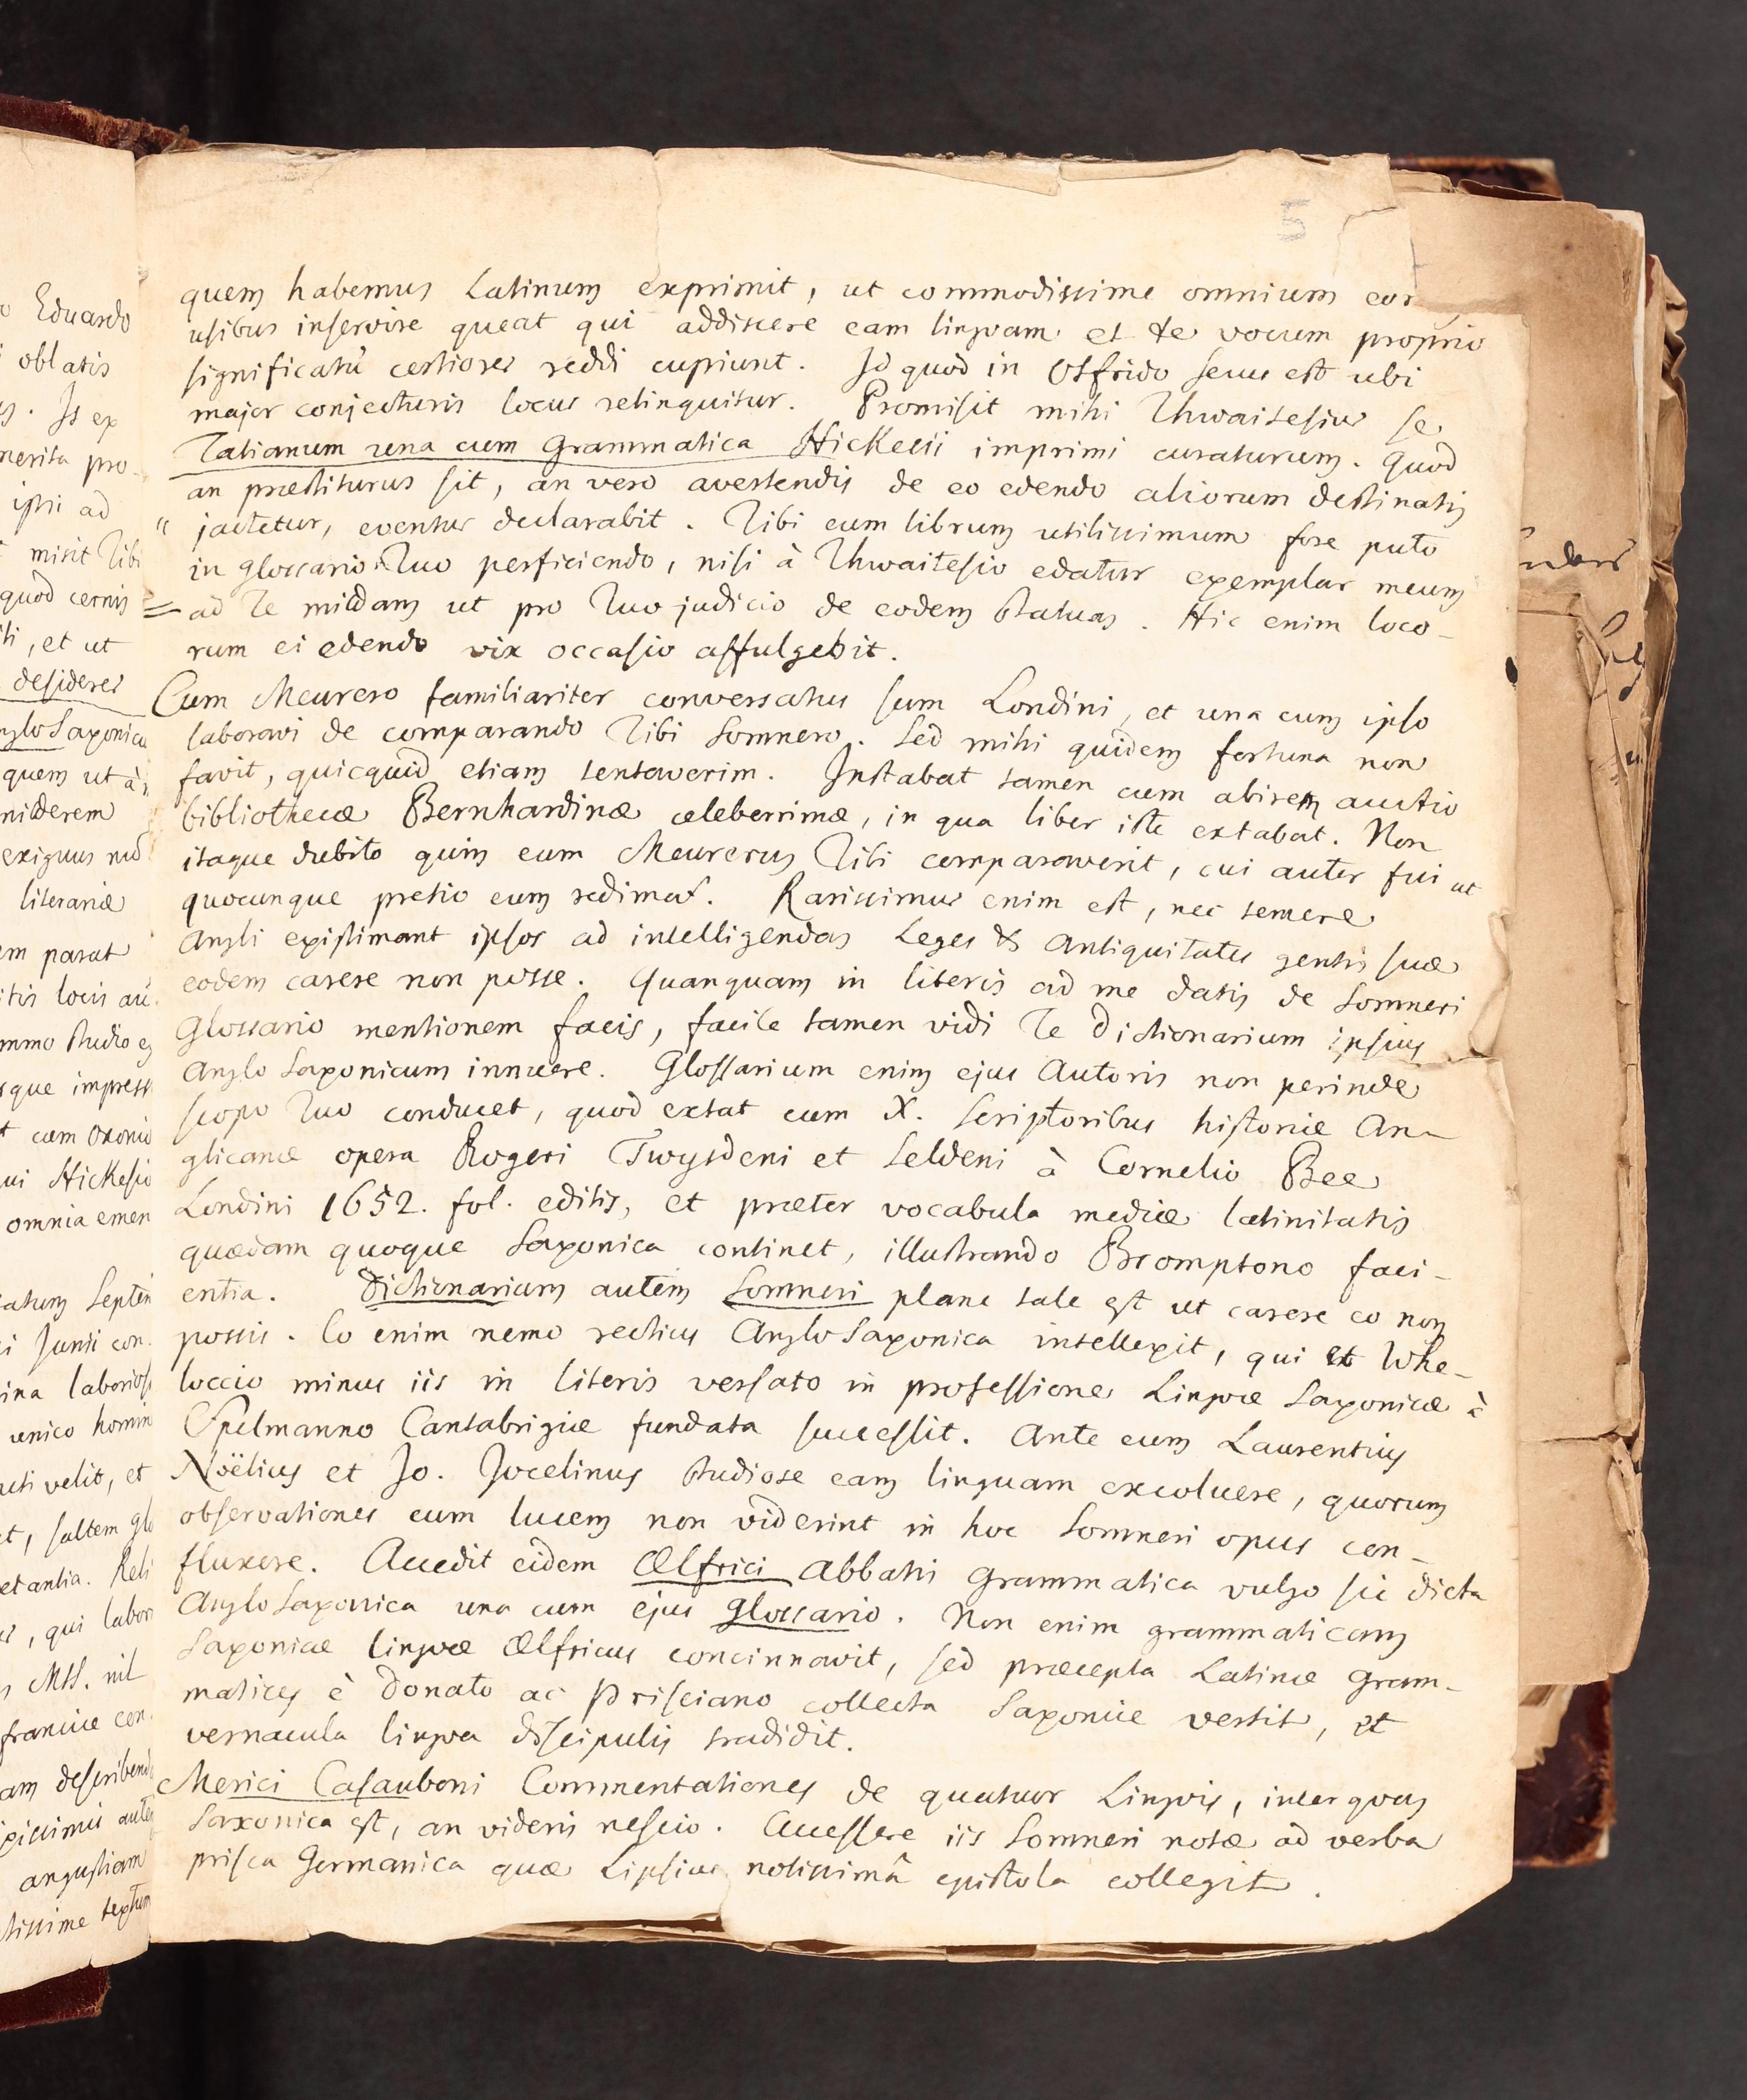 5
quem habemus Latinum exprimit, ut commodissime omnium eor
usibus inservire queat qui addiscere eam lingvam et de vocum proprio
significatu certiores reddi cupiunt. Id quod in Otfrido secus est ubi
major conjecturis locus relinquitur. Promisit mihi Thwaitesius se
Tatianum una cum Grammatica Hickesii imprimi curaturum. Quod
an praestiturus sit, an vero avertendis de eo edendo aliorum destinatis
jactetur, eventus declarabit. Tibi eum librum utilissimum fore puto
in glossario Tuo perficiendo, nisi à Thwaitesio edatur exemplar meum
ad Te mittam ut pro Tuo judicio de eodem statuas. Hic enim loco-
rum ei edendo vix occasio affulgebit.
Cum Meurero familiariter conversatus sum Londini, et una cum ipso
laboravi de comparando Tibi Somnero. Sed mihi quidem fortuna non
favit, quicquid etiam tentaverim. Instabat tamen cum abirem auctio
bibliothecæ Bernhardinæ celeberrimæ, in qua liber iste extabat. Non
itaque dubito quin eum Meurerus Tibi comparaverit, cui autor fui ut
quocunque pretio eum redimat. Rarissimus enim est, nec temere
Angli existimant ipsos ad intelligendas Leges & Antiquitates gentis suæ
eodem carere non posse. Quanquam in literis ad me datis de Somneri
Glossario mentionem facis, facile tamen vidi Te Dictionarium ipsius
Anglo Saxonicum innuere. Glossarium enim ejus Autoris non perinde
scopo Tuo conducet, quod extat cum X. Scriptoribus historiæ An-
glicanæ opera Rogeri Twysdeni et Seldeni à Cornelio Bee
Londini 1652. fol. editis, et præter vocabula mediæ latinitatis
quædam quoque Saxonica continet, illustrando Bromptono faci-
entia. Dictionarium autem Somneri plane tale est ut carere eo non
possis. Eo enim nemo rectius Anglo Saxonica intellexit, qui et Whe-
loccio minus iis in literis versato in professione Lingvæ Saxonicæ à
Spelmanno Cantabrigiæ fundata successit. Ante eum Laurentius
Noëlius et Jo. Jocelinus studiose eam linguam excoluere, quorum
observationes cum lucem non viderint in hoc Somneri opus con-
fluxere. Accedit eidem Ælfrici Abbatis Grammatica vulgo sic dicta
Anglo Saxonica una cum ejus Glossario. Non enim grammaticam
Saxonicæ lingvæ Ælfricus concinnavit, sed præcepta Latinæ Gram-
matices è Donato ac Prisciano collecta Saxonice vertit, et
vernacula lingva discipulis tradidit.
Merici Casauboni Commentationes de quatuor Lingvis, inter qvas
Saxonica est, an videris nescio. Accessere iis Somneri notæ ad verba
prisca Germanica quæ Lipsius notissimâ epistola collegit.